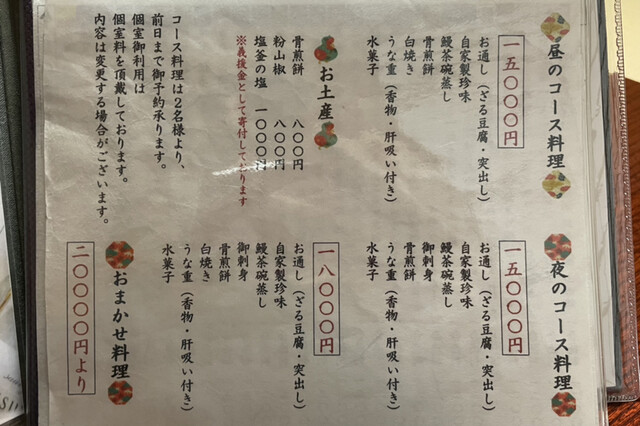 昼のコース料理
一五〇〇〇円
お通し（ざる豆腐・突出し）
自家製珍味
鰻茶碗蒸し
骨煎餅
うな重（香物・肝吸い付き）
水菓子
お土産
骨煎餅　八〇〇円
粉山椒　八〇〇円
塩釜の塩　一〇〇〇円
※義援金として寄付しております
コース料理は２名様より、
前日まで御予約承ります。
個室御利用は
個室料を頂戴しております。
内容は変更する場合がございます。
夜のコース料理
一五〇〇〇円
お通し（ざる豆腐・突出し）
自家製珍味
鰻茶碗蒸し
御刺身
骨煎餅
うな重（香物・肝吸い付き）
水菓子
一八〇〇〇円
お通し（ざる豆腐・突出し）
自家製珍味
鰻茶碗蒸し
御刺身
骨煎餅
白焼き
うな重（香物・肝吸い付き）
水菓子
おまかせ料理
二〇〇〇〇円より